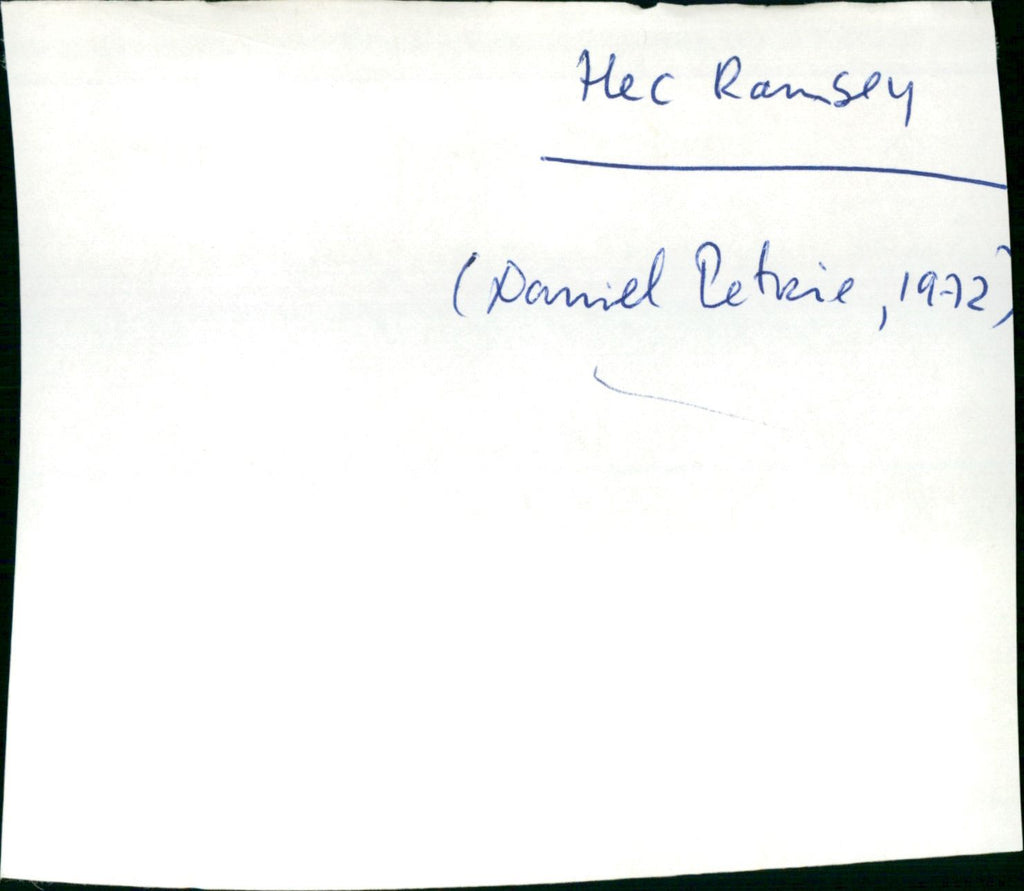 Hec Ramsey
(Daniel Petrie, 1972)